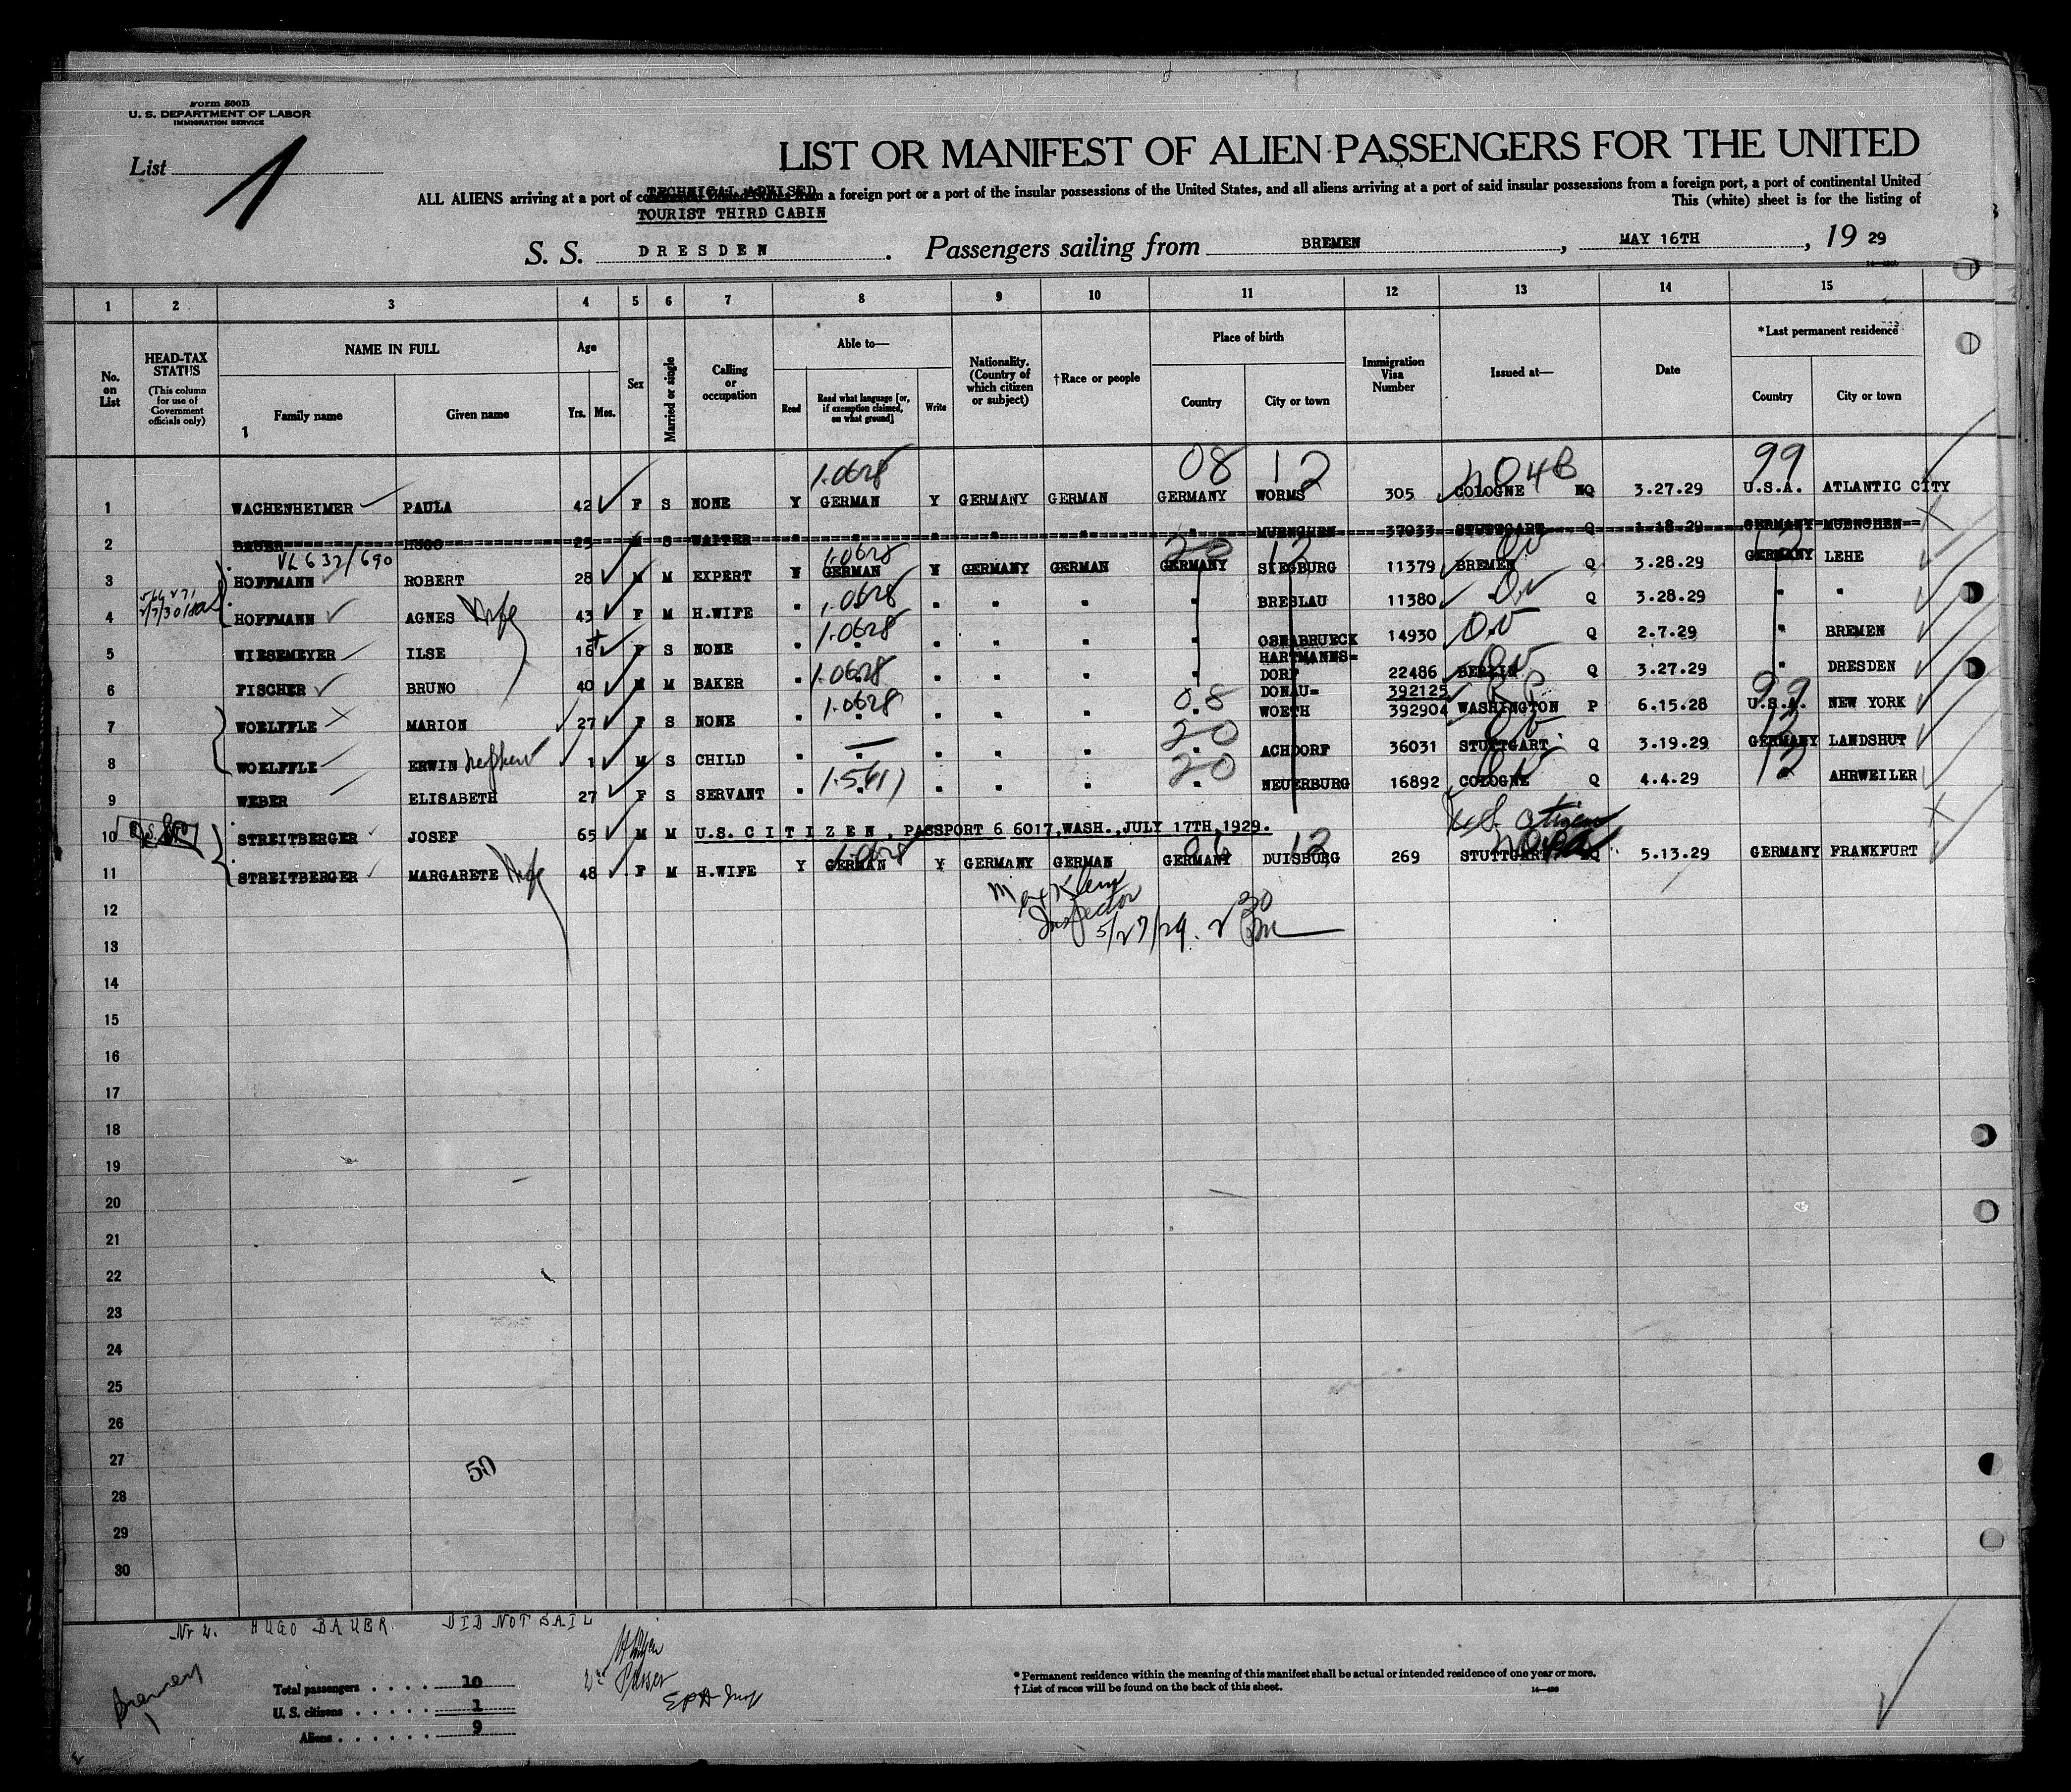 Form 500B
U. S. DEPARTMENT OF LABOR
IMMIGRATION SERVICE
List 1
LIST OR MANIFEST OF ALIEN PASSENGERS FOR THE UNITED
ALL ALIENS arriving at a port of continental United States from a foreign port or a port of the insular possessions of the United States, and all aliens arriving at a port of said insular possessions from a foreign port, a port of continental United
This (white) sheet is for the listing of
TOURIST THIRD CABIN
S. S. DRESDEN. Passengers sailing from BREMEN, MAY 16TH, 19 29
1 2 3 4 5 6 7 8 9 10 11 12 13 14 15
No. on List
HEAD-TAX STATUS
(This column for use of Government officials only)
NAME IN FULL
Family name
Given name
Age
Yrs. Mos.
Sex
Married or single
Calling or occupation
Able to—
Read
Read what language [or, if exemption claimed, on what ground]
Write
Nationality. (Country of which citizen or subject)
†Race or people
Place of birth
Country
City or town
Immigration Visa Number
Issued at—
Date
*Last permanent residence
Country
City or town
1
1.0628 08 12 99
1 WACHENHEIMER PAULA 42 F S NONE Y GERMAN Y GERMANY GERMAN GERMANY WORMS 305 COLOGNE NQ 3.27.29 U.S.A. ATLANTIC CITY
2 BAUER HUGO 29 M S WAITER " " " " " " MUENCHEN 37033 STUTTGART Q 1.18.29 GERMANY MUENCHEN
VL 632/690 1.0628 20 12 12
3 HOFFMANN ROBERT 28 M M EXPERT Y GERMAN Y GERMANY GERMAN GERMANY SIEGBURG 11379 BREMEN Q 3.28.29 GERMANY LEHE
1.0628
4 HOFFMANN AGNES wife 43 F M H.WIFE " " " " " " BRESLAU 11380 " Q 3.28.29 " "
1.0628
5 WIESEMEYER ILSE 16 F S NONE " " " " " " OSNABRUECK 14930 Q 2.7.29 " BREMEN
1.0628
6 FISCHER BRUNO 40 M M BAKER " " " " " " HARTMANNS=DORF 22486 BERLIN Q 3.27.29 " DRESDEN
1.0628 08 99
7 WOELFFLE MARION 27 F S NONE " " " " " " DONAU=WOETH 392125 392904 WASHINGTON P 6.15.28 U.S.A. NEW YORK
20 12
8 WOELFFLE ERWIN nephew 1 M S CHILD " " " " " " ACHDORF 36031 STUTTGART Q 3.19.29 GERMANY LANDSHUT
1.5611 20 12
9 WEBER ELISABETH 27 F S SERVANT " " " " " " NEUERBURG 16892 COLOGNE Q 4.4.29 AHRWEILER
10 STREITBERGER JOSEF 65 M M U.S. CITIZEN, PASSPORT 6 6017, WASH., JULY 17TH, 1929. U.S. citizen
1.0628 12
11 STREITBERGER MARGARETE wife 48 F M H.WIFE Y GERMAN Y GERMANY GERMAN GERMANY DUISBURG 269 STUTTGART 5.13.29 GERMANY FRANKFURT
12
Inspector
13
5/27/29. 2 30 pm
14
15
16
17
18
19
20
21
22
23
24
25
26
27
50
28
29
30
Nr 2. HUGO BAUER. DID NOT SAIL
Purser
Bremen
Total passengers . . . . 10
U. S. citizens . . . . . 1
Aliens . . . . . . 9
* Permanent residence within the meaning of this manifest shall be actual or intended residence of one year or more.
† List of races will be found on the back of this sheet.